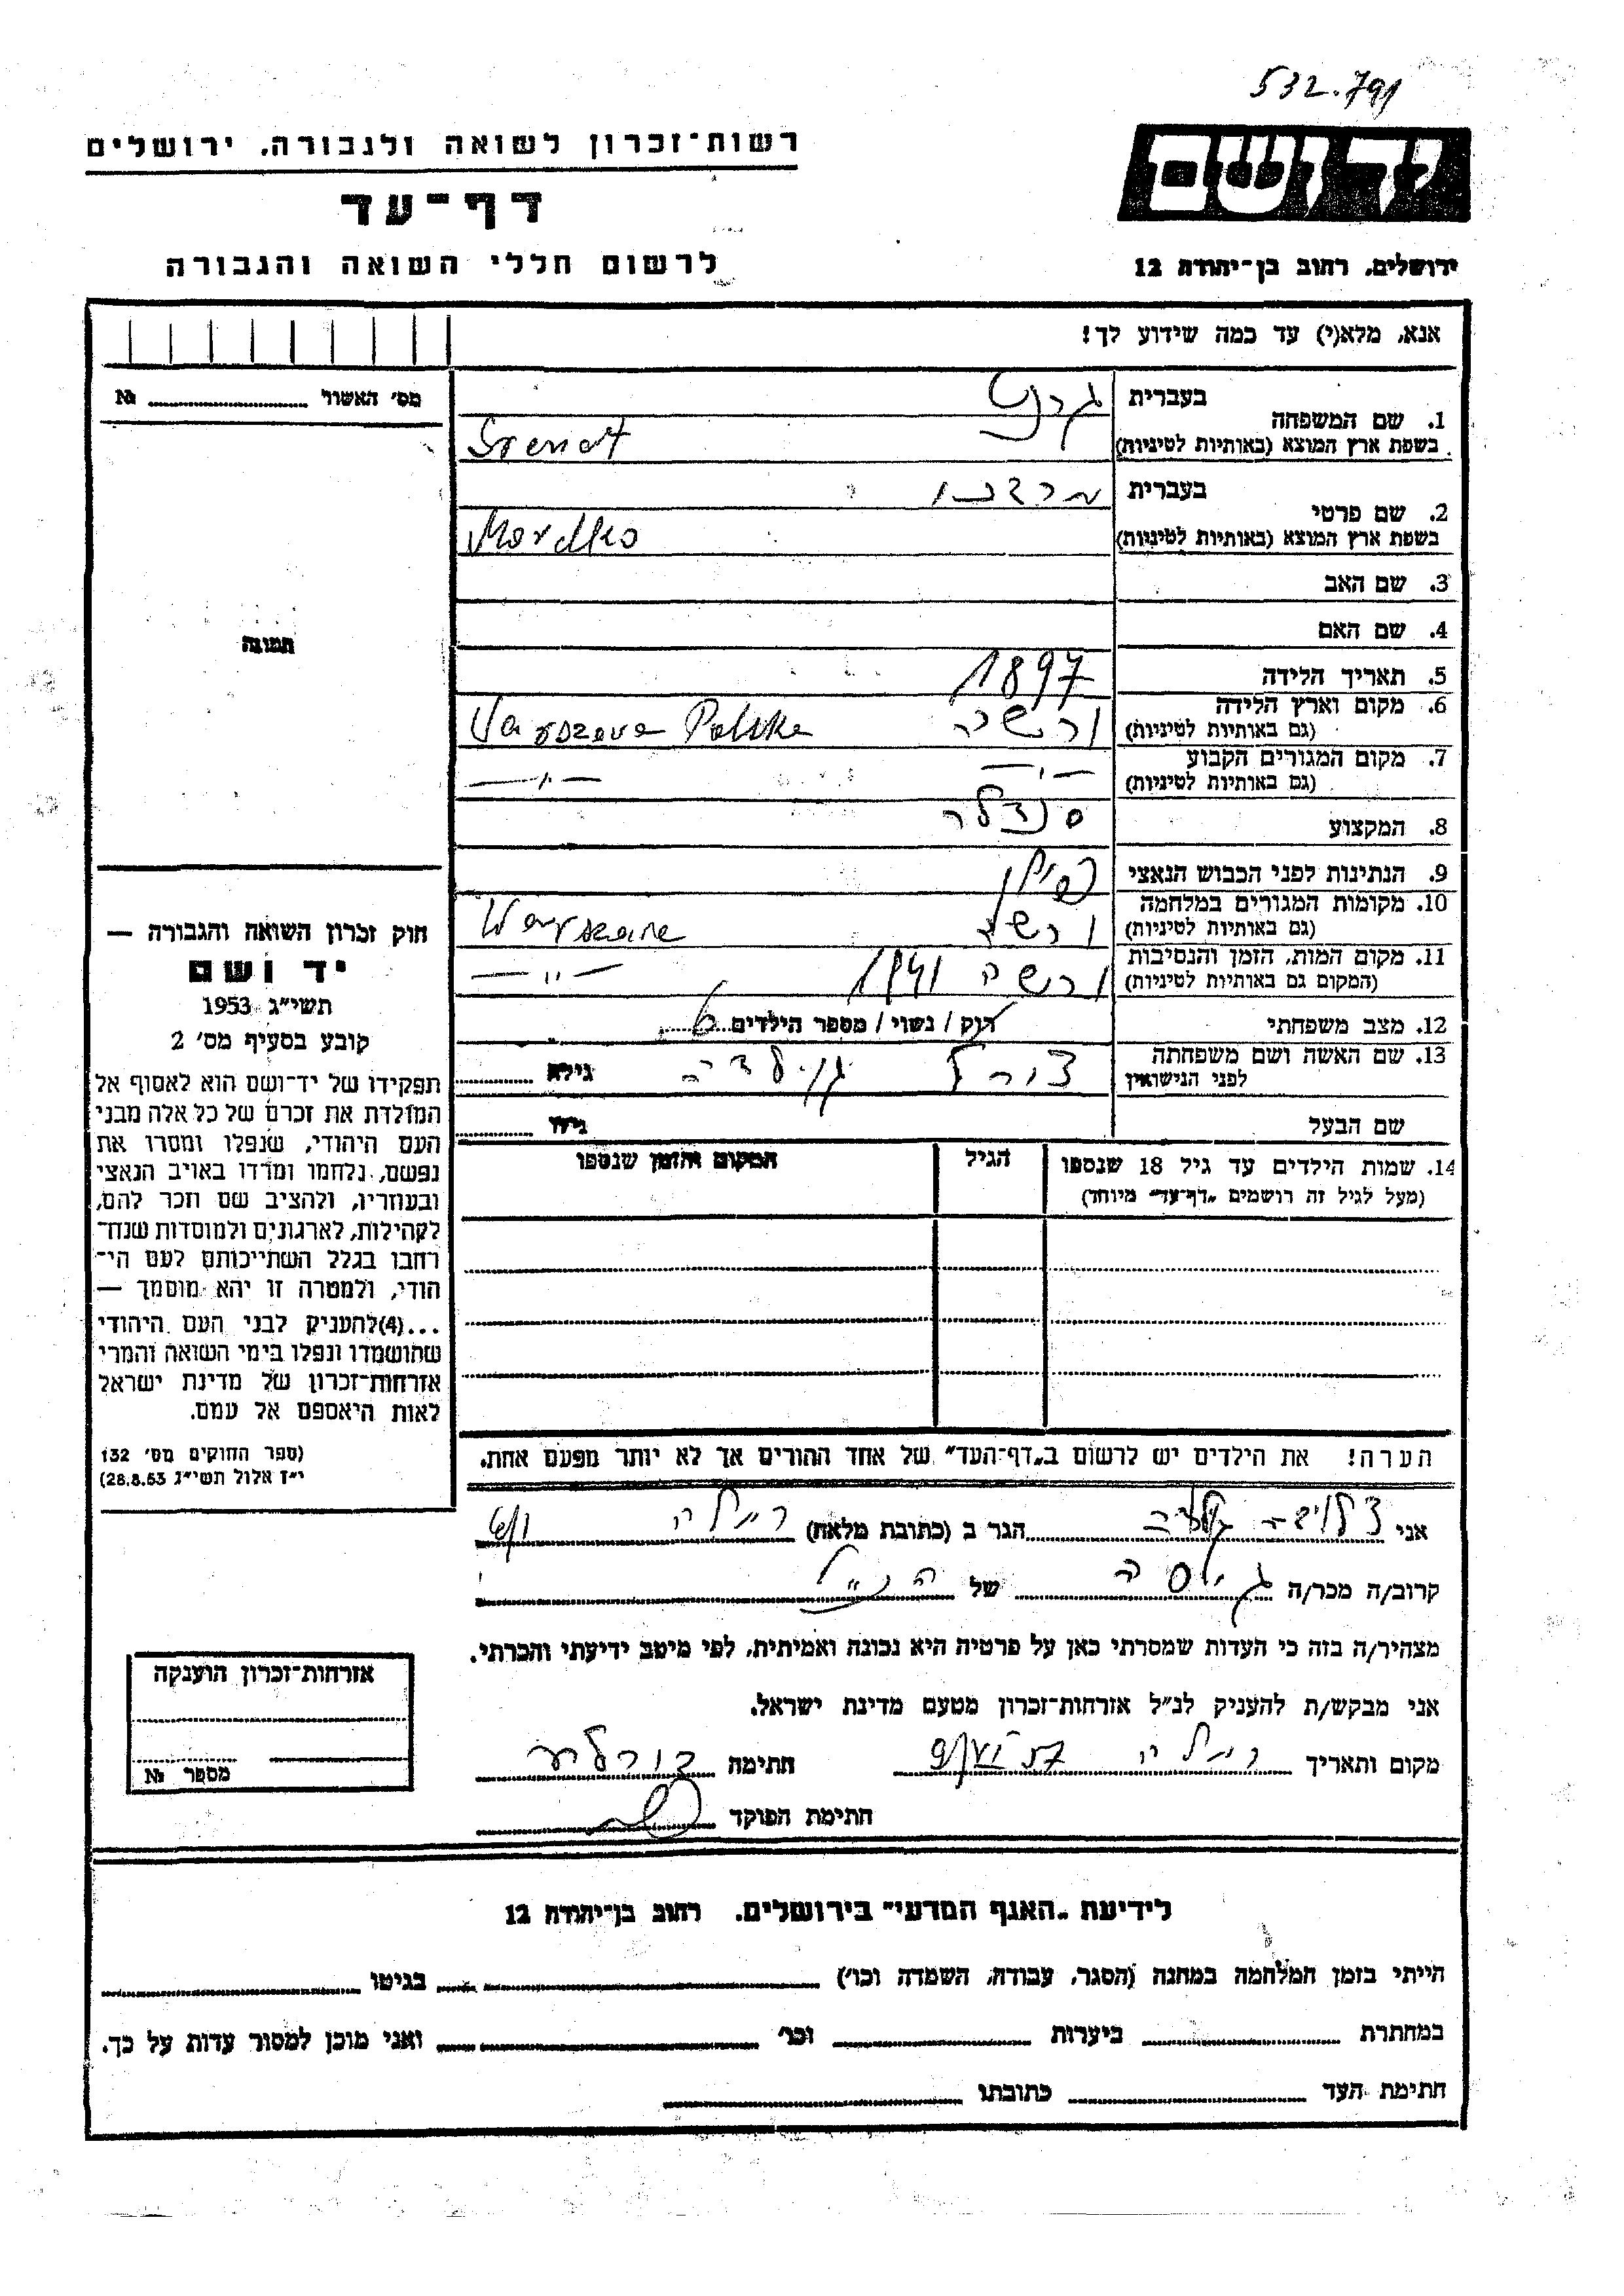 532.791
רשות־זכרון לשואה ולגבורה, ירושלים
יד ושם
דף־עד
לרשום חללי השואה והגבורה
ירושלים, רחוב בן־יהודה 12
אנא, מלא(י) עד כמה שידוע לך!
מס' האשור № 
1. שם המשפחה
בעברית
בשפת ארץ המוצא (באותיות לטיניות)
2. שם פרטי
בעברית
בשפת ארץ המוצא (באותיות לטיניות) Mordko
3. שם האב
4. שם האם
תמונה
5. תאריך הלידה 1897
6. מקום וארץ הלידה
(גם באותיות לטיניות) ורשה Varszava Polska
7. מקום המגורים הקבוע
(גם באותיות לטיניות) — " — — " —
8. המקצוע סנדלר
9. הנתינות לפני הכבוש הנאצי פולין
10. מקומות המגורים במלחמה
(גם באותיות לטיניות) ורשה
11. מקום המות, הזמן והנסיבות
(המקום גם באותיות לטיניות) ורשה 1941 — " —
12. מצב משפחתי רוק / נשוי / מספר הילדים 6
13. שם האשה ושם משפחתה
לפני הנישואין גילא
שם הבעל גילו
14. שמות הילדים עד גיל 18 שנספו
(מעל לגיל זה רושמים „דף־עד" מיוחד)
הגיל
המקום והזמן שנספו
הערה! את הילדים יש לרשום ב„דף־העד" של אחד ההורים אך לא יותר מפעם אחת.
חוק זכרון השואה והגבורה —
יד ושם
תשי"ג 1953
קובע בסעיף מס' 2
תפקידו של יד־ושם הוא לאסוף אל
המולדת את זכרם של כל אלה מבני
העם היהודי, שנפלו ומסרו את
נפשם, נלחמו ומרדו באויב הנאצי
ובעוזריו, ולהציב שם וזכר להם,
לקהילות, לארגונים ולמוסדות שנח־
רחבו בגלל השתייכותם לעם הי־
הודי, ולמטרה זו יהא מוסמך —
...(4)להעניק לבני העם היהודי
שהושמדו ונפלו בימי השואה והמרי
אזרחות־זכרון של מדינת ישראל
לאות היאספם אל עמם.
(ספר החוקים מס' 132
י"ז אלול תשי"ג 28.8.53)
אני הגר ב (כתובת מלאה) רמלה
קרוב/ה מכר/ה גיסה של הנ"ל
מצהיר/ה בזה כי העדות שמסרתי כאן על פרטיה היא נכונה ואמיתית, לפי מיטב ידיעתי והכרתי.
אני מבקש/ת להעניק לנ"ל אזרחות־זכרון מטעם מדינת ישראל.
מקום ותאריך רמלה חתימה
חתימת הפוקד
אזרחות־זכרון הוענקה
מספר №
לידיעת „האגף המדעי" בירושלים. רחוב בן־יהודה 12
הייתי בזמן המלחמה במחנה (הסגר, עבודה, השמדה וכו') בגיטו
במחתרת ביערות וכו' ואני מוכן למסור עדות על כך.
חתימת העד כתובתו